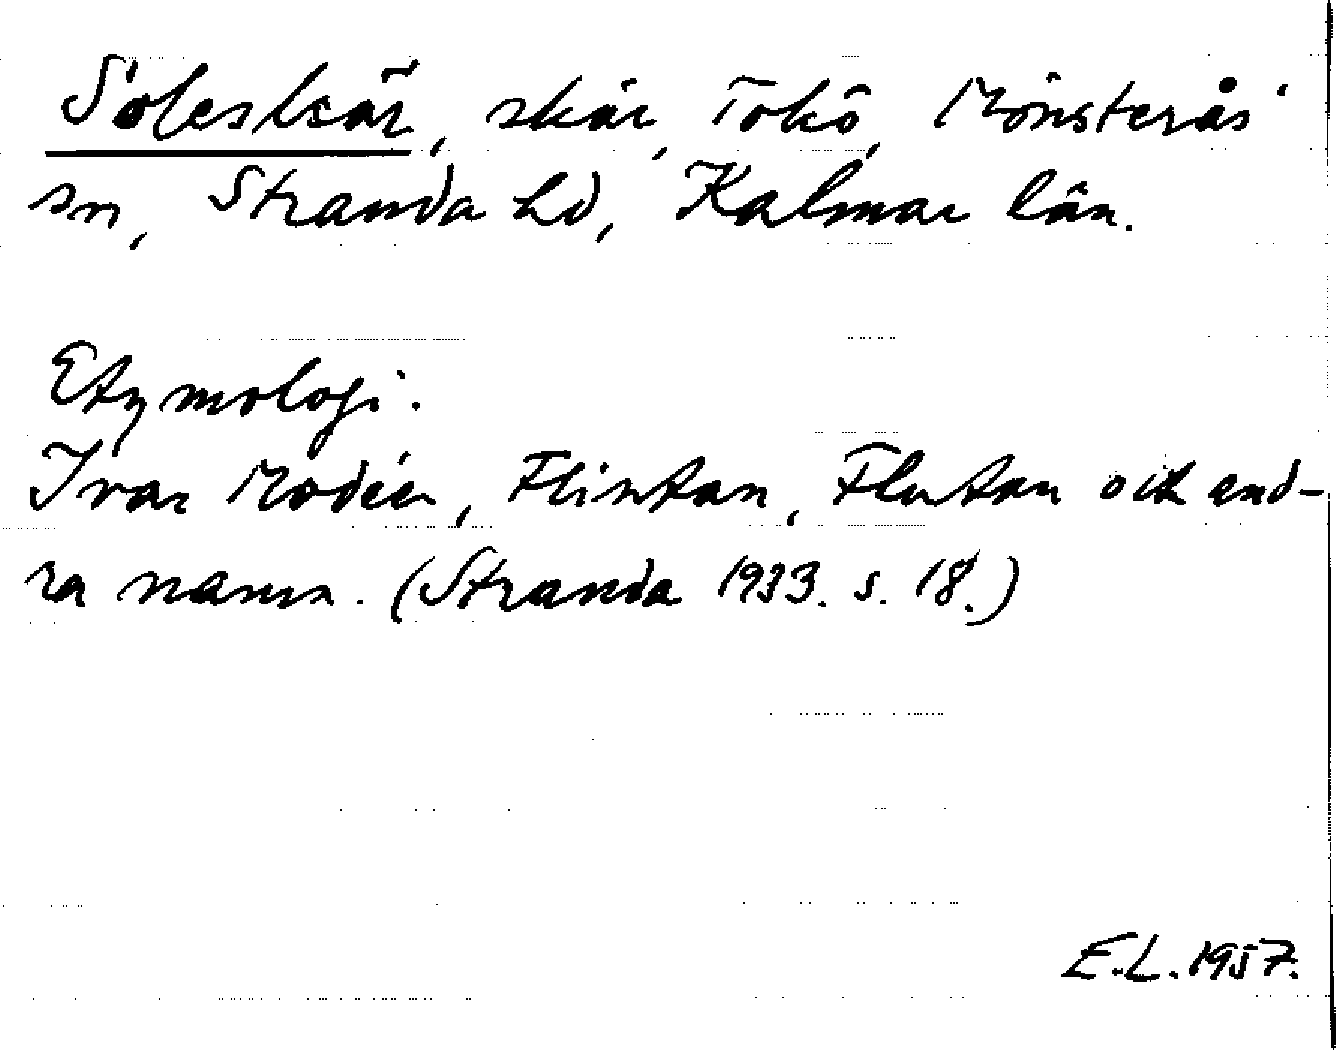 Söleskär, skär, Tokö, Mönsterås
sn, Stranda hd, Kalmar län.
Etymologi.
Ivar Modéer, Flintan, Flutan och and-
ra namn. (Stranda 1933. s. 18.)
E.L. 1957.